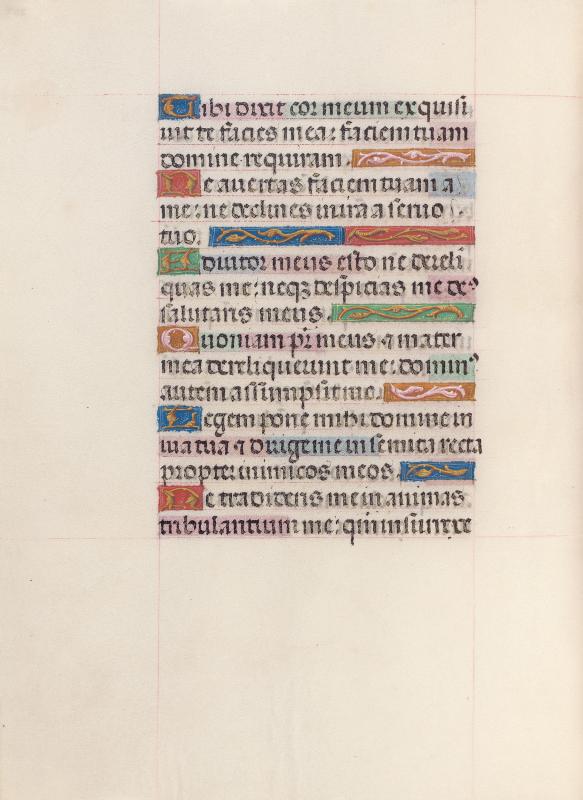 Tibi dixit cor meum exquisi
uit te facies mea: faciem tuam
domine requiram.
Ne auertas faciem tuam a
me: ne declines in ira a seruo
tuo.
Adiutor meus esto ne dereli
quas me: neqꝫ despicias me deꝰ
salutaris meus.
Quoniam pr̄ meus ⁊ mater
mea dereliquerunt me: dominꝰ
autem assumpsit me.
Legem pone mihi domine in
uia tua ⁊ dirige me in semita recta
propter inimicos meos.
Ne tradideris me in animas
tribulantium me: qm̄ insurrexe